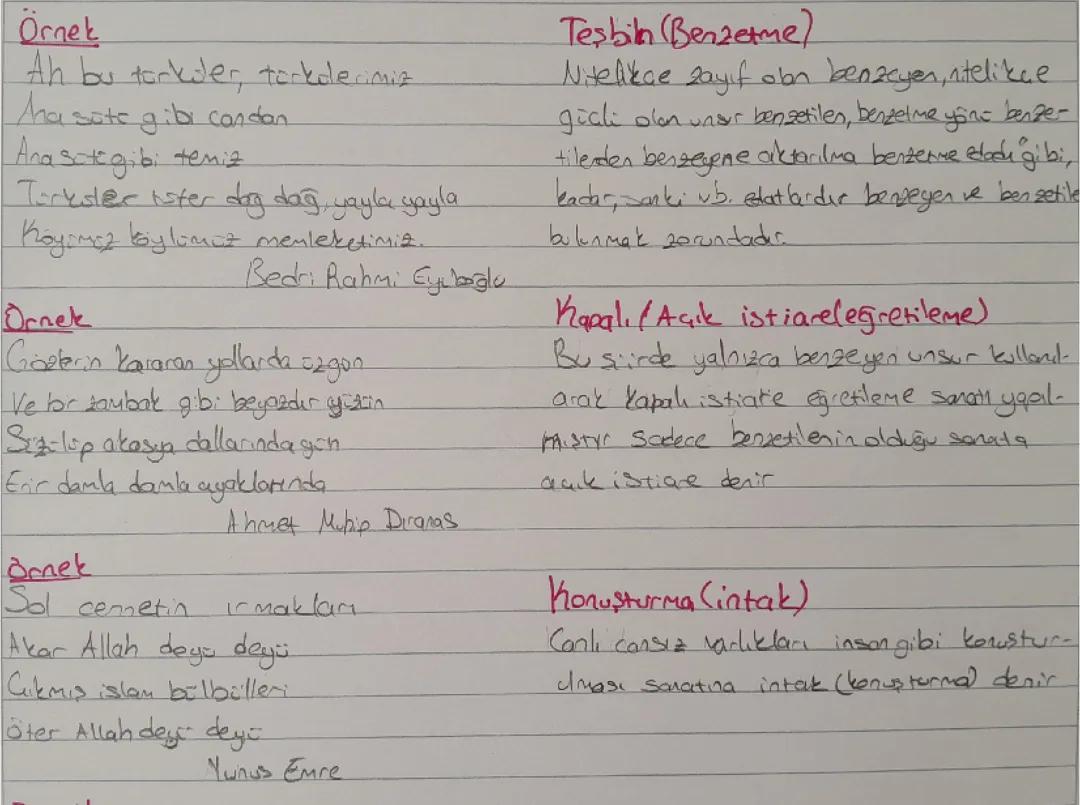 Örnek
Ah bu türküler, türkülerimiz
Ana sütü gibi candan
Ana sütü gibi temiz
Türküler tüter dağ dağ, yayla yayla
Köyümüz köylümüz memleketimiz.
Bedri Rahmi Eyüboğlu
Teşbih (Benzetme)
Nitelikçe zayıf olan benzeyen, nitelikçe
güçlü olan unsur benzetilen, benzetme yönü benze-
tilenden benzeyene aktarılma benzetme edatı gibi,
kadar, sanki vb. edatlardır benzeyen ve benzetile
bulunmak zorundadır.
Örnek
Gözlerin kararan yollarda üzgün
Ve bir zambak gibi beyazdır yüzün
Süzülüp akasya dallarında gün
Erir damla damla ayaklarında
Ahmet Muhip Dıranas
Kapalı / Açık istiare (eğretileme)
Bu şiirde yalnızca benzeyen unsur kullanıl-
arak kapalı istiare eğretileme sanatı yapıl-
mıştır Sadece benzetilenin olduğu sanata
açık istiare denir
Örnek
Şol cennetin ırmakları
Akar Allah deyü deyü
Çıkmış islam bülbülleri
Öter Allah deyü deyü
Yunus Emre
Konuşturma (intak)
Canlı cansız varlıkları insan gibi konuştur-
ulması sanatına intak (konuşturma) denir